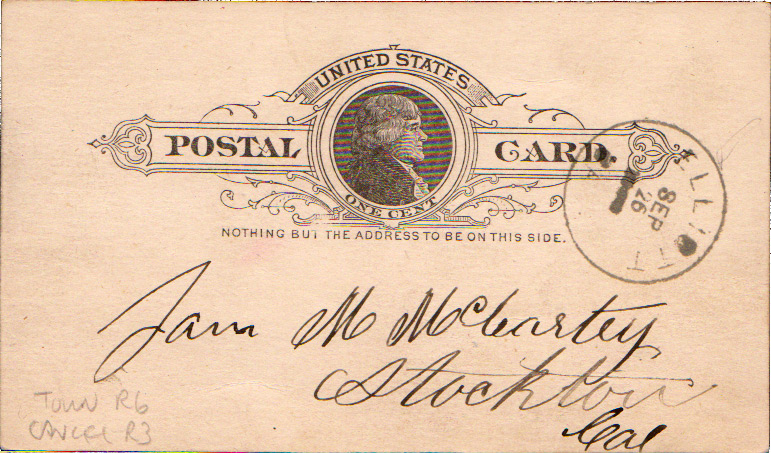 UNITED STATES
POSTAL CARD.
ONE CENT
NOTHING BUT THE ADDRESS TO BE ON THIS SIDE.
ELLIOTT
SEP
26
Jam M McCartey
Stockton
Cal
TOWN R6
CANCEL R3